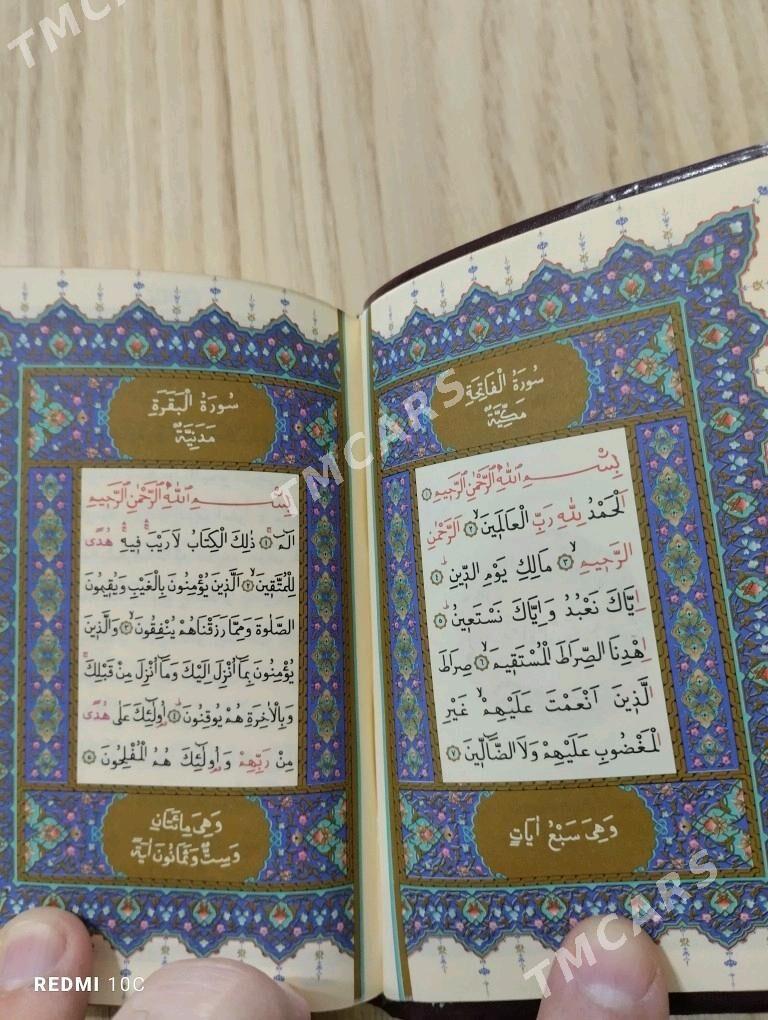 سُورَةُ الْفَاتِحَةِ
مَكِّيَّةٌ
بِسْمِ اللهِ الرَّحْمٰنِ الرَّحِيمِ ﴿١﴾
اَلْحَمْدُ لِلّٰهِ رَبِّ الْعَالَمِينَ ﴿٢﴾ اَلرَّحْمٰنِ
الرَّحِيمِ ﴿٣﴾ مَالِكِ يَوْمِ الدِّينِ ﴿٤﴾
اِيَّاكَ نَعْبُدُ وَاِيَّاكَ نَسْتَعِينُ ﴿٥﴾
اِهْدِنَا الصِّرَاطَ الْمُسْتَقِيمَ ﴿٦﴾ صِرَاطَ
الَّذِينَ اَنْعَمْتَ عَلَيْهِمْ غَيْرِ
الْمَغْضُوبِ عَلَيْهِمْ وَلَا الضَّٓالِّينَ ﴿٧﴾
وَهِيَ سَبْعُ اٰيَاتٍ
سُورَةُ الْبَقَرَةِ
مَدَنِيَّةٌ
بِسْمِ اللهِ الرَّحْمٰنِ الرَّحِيمِ
الٓمٓ ﴿١﴾ ذٰلِكَ الْكِتَابُ لَا رَيْبَ فِيهِ هُدًى
لِلْمُتَّقِينَ ﴿٢﴾ اَلَّذِينَ يُؤْمِنُونَ بِالْغَيْبِ وَيُقِيمُونَ
الصَّلٰوةَ وَمِمَّا رَزَقْنَاهُمْ يُنْفِقُونَ ﴿٣﴾ وَالَّذِينَ
يُؤْمِنُونَ بِمَٓا اُنْزِلَ اِلَيْكَ وَمَٓا اُنْزِلَ مِنْ قَبْلِكَ
وَبِالْاٰخِرَةِ هُمْ يُوقِنُونَ ﴿٤﴾ اُولٰٓئِكَ عَلٰى هُدًى
مِنْ رَبِّهِمْ وَاُولٰٓئِكَ هُمُ الْمُفْلِحُونَ ﴿٥﴾
وَهِيَ مِائَتَانِ
وَسِتٌّ وَثَمَانُونَ اٰيَةً
TMCARS
TMCARS
TMCARS
REDMI 10C